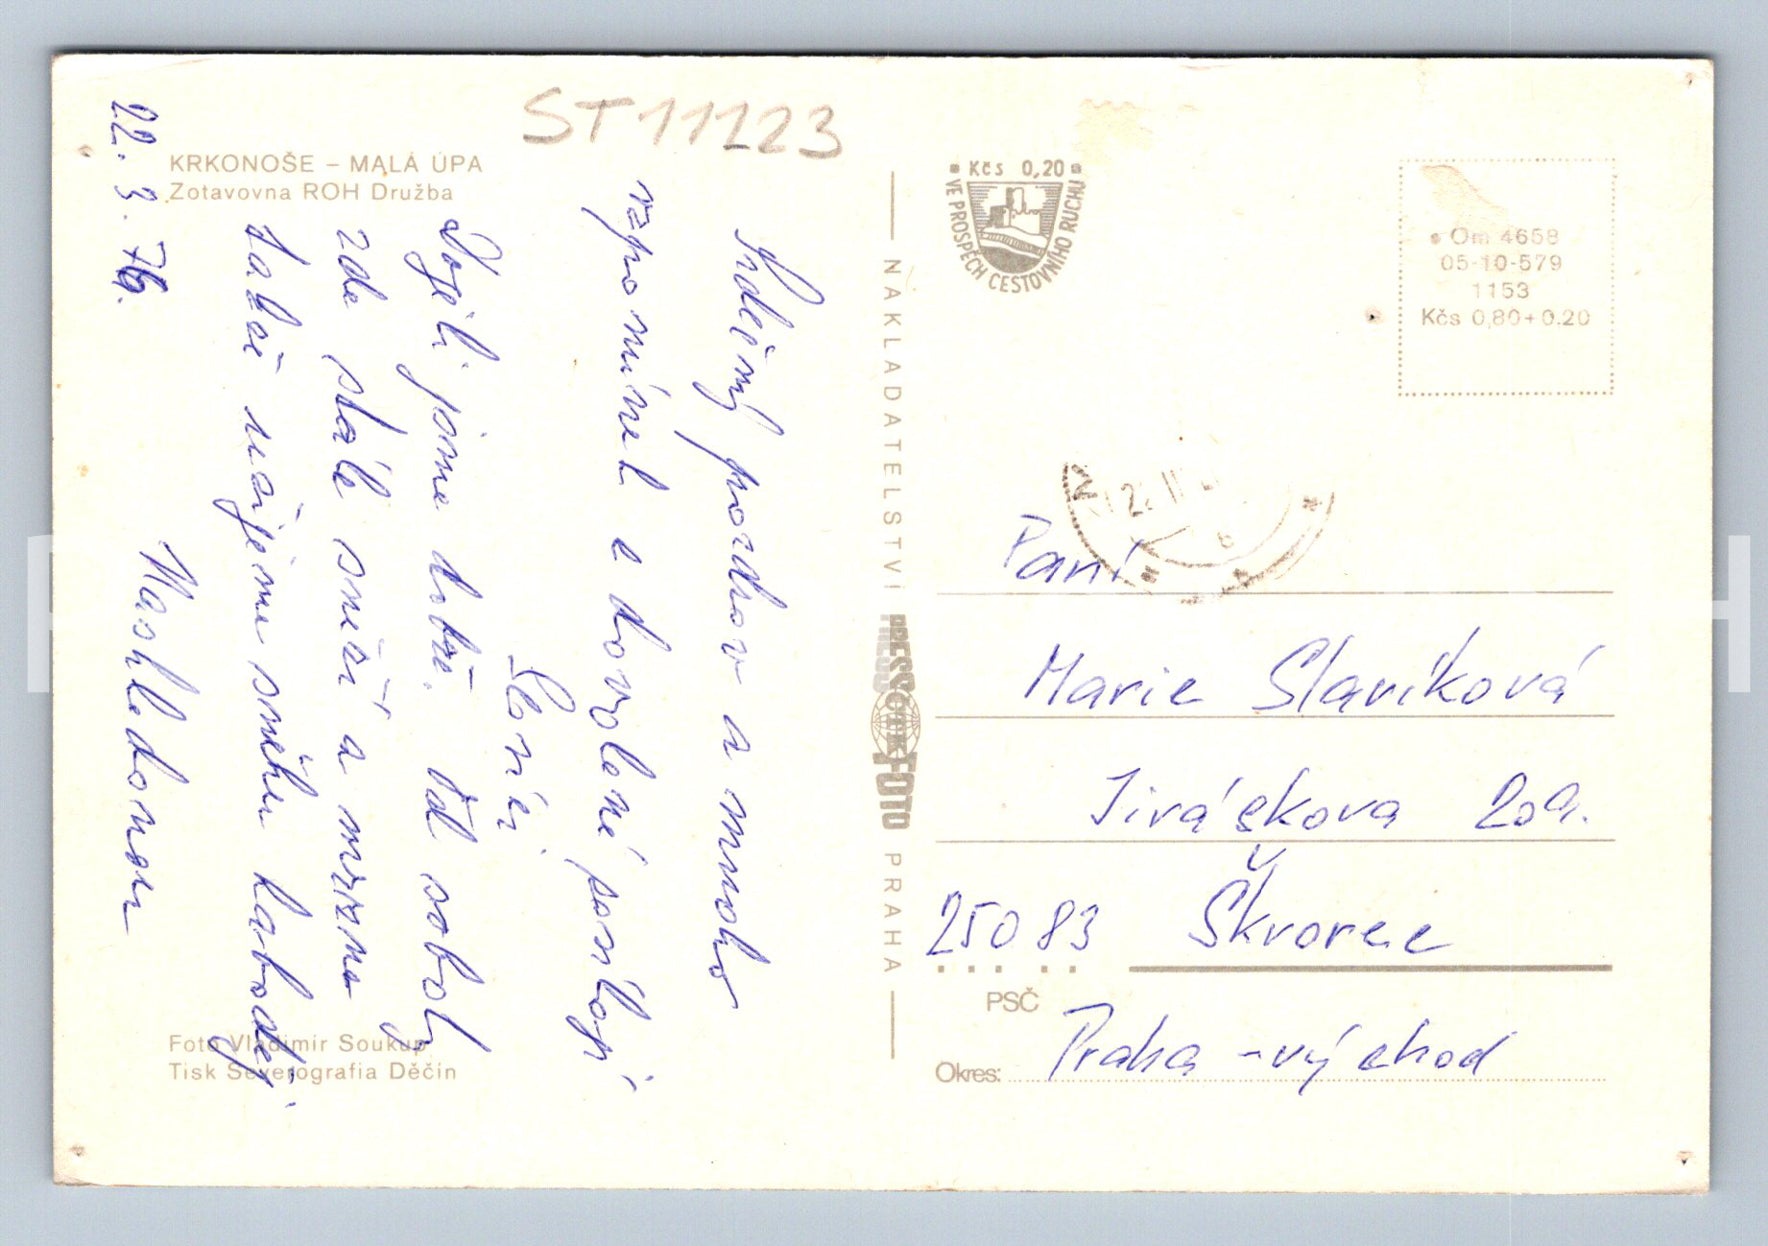 ST11123
KRKONOŠE – MALÁ ÚPA
Zotavovna ROH Družba
22. 3. 76.
Srdečný pozdrav a mnoho
vzpomínek z dovolené posílají
Slaničí
Dojeli jsme dobře. Od soboty
zde stále sněží a mrzne
takže užijeme sněhu
Nashledanou
Foto Vladimír Soukup
Tisk Severografia Děčín
NAKLADATELSTVÍ PRESSFOTO PRAHA
Kčs 0,20
VE PROSPĚCH CESTOVNÍHO RUCHU
Om 4658
05-10-579
1153
Kčs 0,80+0.20
Paní
Marie Slavíková
Jiráskova 209.
250 83 Škvorec
PSČ
Okres: Praha - východ